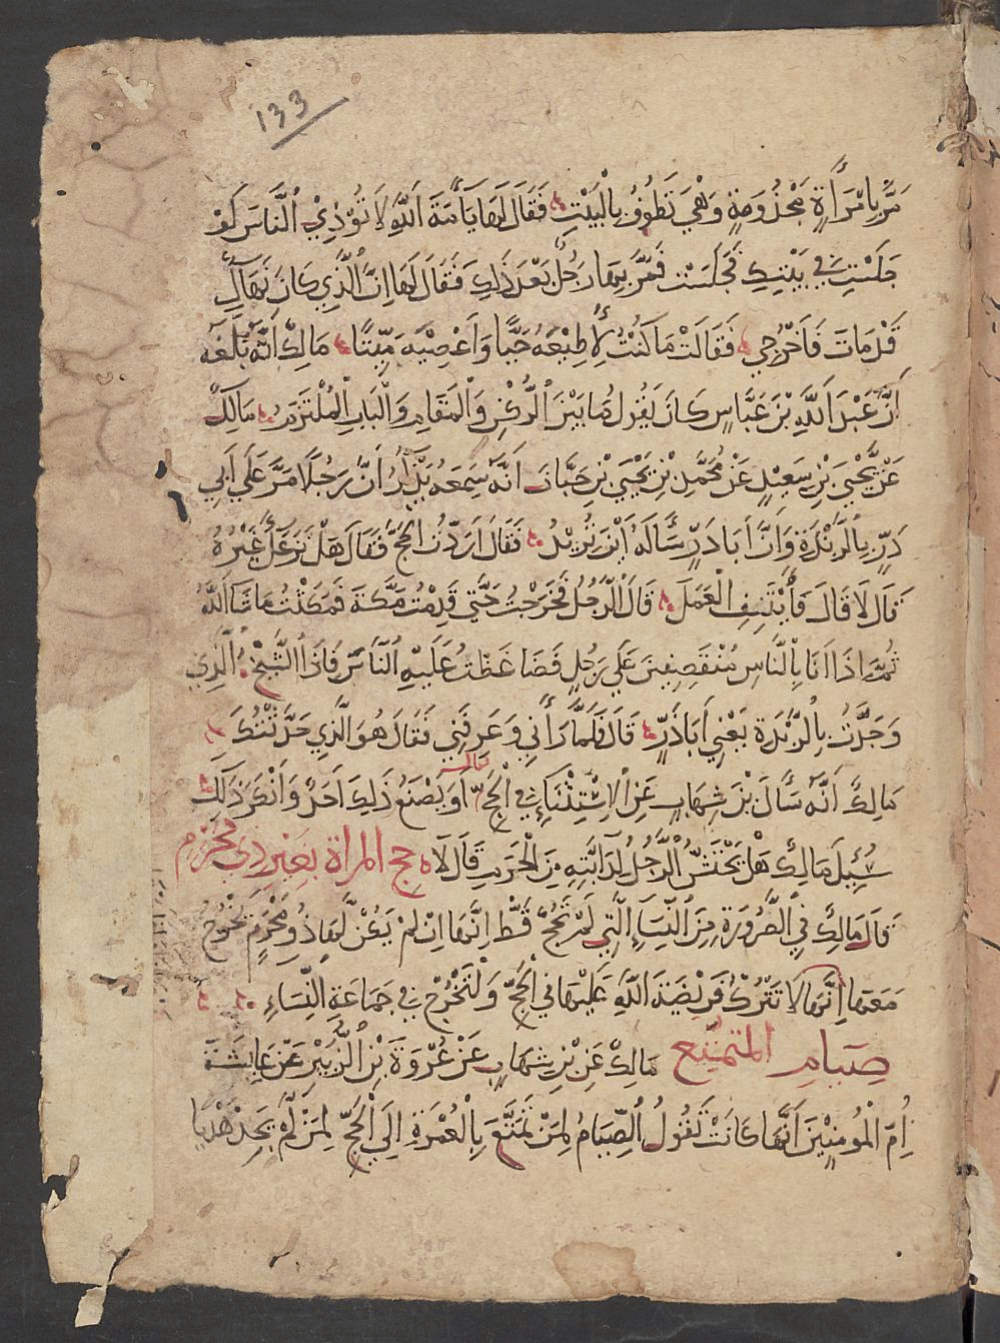 133
مَرَّ بِامْرَأَةٍ مَجْذُومَةٍ وَهْيَ تَطُوفُ بِالْبَيْتِ فَقَالَ لَهَا يَا أَمَةَ اللَّهِ لَا تُؤْذِي النَّاسَ لَوْ
جَلَسْتِ فِي بَيْتِكِ فَجَلَسَتْ فَمَرَّ بِهَا رَجُلٌ بَعْدَ ذَلِكَ فَقَالَ لَهَا إِنَّ الَّذِي كَانَ نَهَاكِ
قَدْ مَاتَ فَاخْرُجِي فَقَالَتْ مَا كُنْتُ لِأُطِيعَهُ حَيًّا وَأَعْصِيَهُ مَيِّتًا مَالِكٌ أَنَّهُ بَلَغَهُ
أَنَّ عَبْدَ اللَّهِ بْنَ عَبَّاسٍ كَانَ يَقُولُ مَا بَيْنَ الرُّكْنِ وَالْمَقَامِ وَالْبَابِ الْمُلْتَزَمُ مَالِكٌ
عَنْ يَحْيَى بْنِ سَعِيدٍ عَنْ مُحَمَّدِ بْنِ يَحْيَى بْنِ حَبَّانَ أَنَّهُ سَمِعَهُ يَذْكُرُ أَنَّ رَجُلًا مَرَّ عَلَى أَبِي
ذَرٍّ بِالرَّبَذَةِ وَأَنَّ أَبَا ذَرٍّ سَأَلَهُ أَيْنَ تُرِيدُ فَقَالَ أَرَدْتُ الْحَجَّ فَقَالَ هَلْ نَزَعَكَ غَيْرُهُ
قَالَ لَا قَالَ فَأْتَنِفِ الْعَمَلَ قَالَ الرَّجُلُ فَخَرَجْتُ حَتَّى قَدِمْتُ مَكَّةَ فَمَكَثْتُ مَا شَاءَ اللَّهُ
ثُمَّ إِذَا أَنَا بِالنَّاسِ مُنْقَصِفِينَ عَلَى رَجُلٍ فَضَاغَطْتُ عَلَيْهِ النَّاسَ فَإِذَا الشَّيْخُ الَّذِي
وَجَدْتُ بِالرَّبَذَةِ يَعْنِي أَبَا ذَرٍّ قَالَ فَلَمَّا رَآنِي وَعَرَفَنِي فَقَالَ هُوَ الَّذِي حَدَّثْتُكَ
مَالِكٌ أَنَّهُ سَأَلَ بْنَ شِهَابٍ عَنِ الِاسْتِثْنَاءِ فِي الْحَجِّ فقال أَوَيَصْنَعُ ذَلِكَ أَحَدٌ وَأَنْكَرَ ذَلِكَ
سُئِلَ مَالِكٌ هَلْ يَحْتَشُّ الرَّجُلُ لِدَابَّتِهِ مِنَ الْحَرَمِ قَالَ لَا حج المرأة بغير ذي محرم
قَالَ مَالِكٌ فِي الصَّرُورَةِ مِنَ النِّسَاءِ الَّتِي لَمْ تَحُجَّ قَطُّ إِنَّهَا إِنْ لَمْ يَكُنْ لَهَا ذُو مَحْرَمٍ يَخْرُجُ
مَعَهَا إِنَّهَا لَا تَتْرُكُ فَرِيضَةَ اللَّهِ عَلَيْهَا فِي الْحَجِّ وَلْتَخْرُجْ فِي جَمَاعَةِ النِّسَاءِ
صيام المتمتع مَالِكٌ عَنِ بْنِ شِهَابٍ عَنْ عُرْوَةَ بْنِ الزُّبَيْرِ عَنْ عَائِشَةَ
أُمِّ الْمُؤْمِنِينَ أَنَّهَا كَانَتْ تَقُولُ الصِّيَامُ لِمَنْ تَمَتَّعَ بِالْعُمْرَةِ إِلَى الْحَجِّ لِمَنْ لَمْ يَجِدْ هَدْيًا